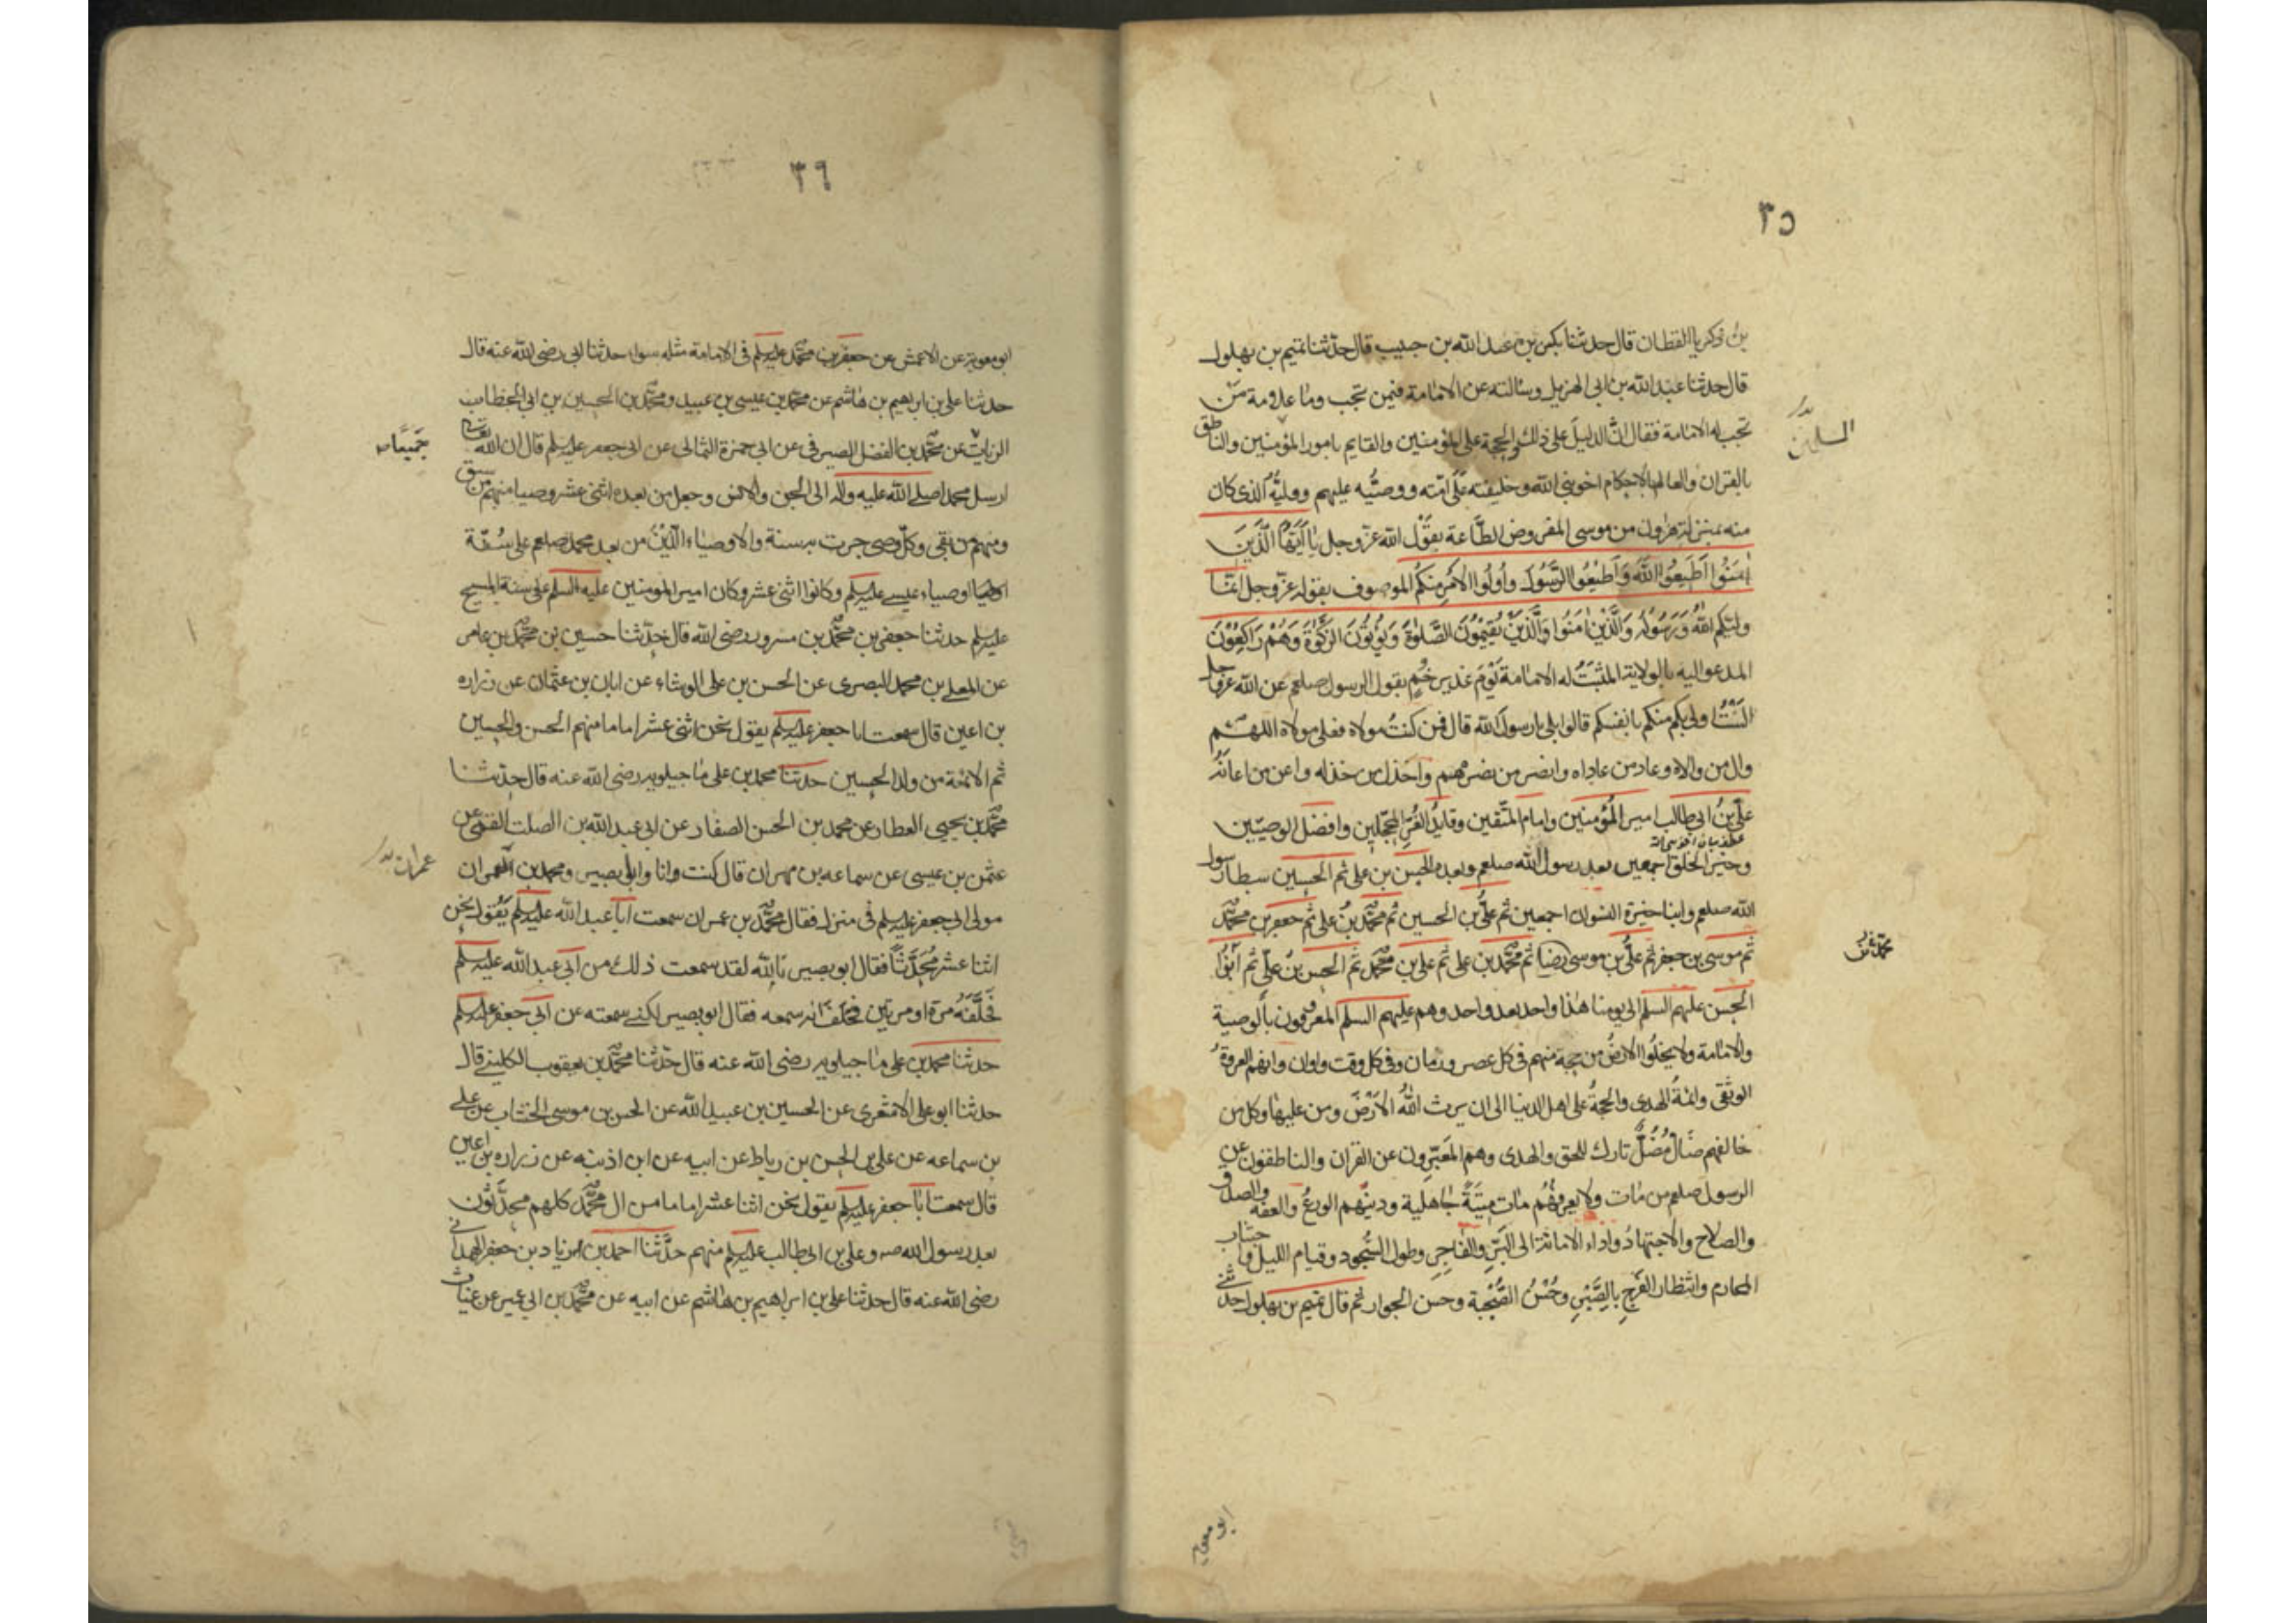 ٣٥
بن زكريا القطان قال حدثنا بكر بن عبد الله بن حبيب قال حدّثنا تميم بن بهلول
قال حدثنا عبد الله بن ابى الهزيل وسالته عن الامامة فيمن تجب وما علامة مَن
تجب له الامامة فقال انّ الدليل على ذلك والحجة على المؤمنين والقايم بامور المؤمنين والناطق
المسلمين
بالقران والعالم بالاحكام اخو نبى الله وخليفته على امّته ووصيُّه عليهم ووليُّه الذى كان
منه بمنزلة هٰرون من موسى المفروض الطَّاعة بقَوْل الله عزّوجل يٰا اَيُّهَا الَّذينَ
اٰمَنُوا اَطيعُوا اللهَ وَاَطيعُوا الرَّسُولَ وَاُولُوا الاَمْرِ مِنكُم الموصوف بقوله عزّوجل انَّمٰا
وليّكم اللهُ وَرَسُولُه وَالَّذينَ اٰمَنُوا وَالَّذينَ يُقيمُونَ الصَّلوٰةَ وَيُؤتُونَ الزَّكوٰةَ وَهُمْ رٰاكِعُوْنَ
المدعو اليه بالولاية المثبَتُ له الامٰامة يَوْمَ غدير خُمٍ بقول الرسول صلعم عن الله عزوجل
اَلَسْتُ اولى بكم منكم بانفسكم قالوا بلى يا رسول الله قال فمن كنتُ مولاه فعلى مولاه اللهم
وال من والاه وعاد من عاداه وانصر من نصره واخذل من خذله واعن من اعانَهُ
علىّ بنُ ابى طالب امير المُؤمنين وامام المتّقين وقايدُ الغُرِّ المحجّلين وافضل الوصيّين
وخير الخلق اجمعين بعد رسول الله صلعم وبعده الحسن بن على ثم الحسين سبطا رسول
الله صلعم وابنا خيرة النسوان اجمعين ثم علىُّ بن الحسين ثم محمّد بنُ على ثم جعفر بن محمّد
ثم موسى بن جعفر ثم علىُّ بن موسى رضا ثم محمّد بن على ثم على بن محمّد ثم الحسن بنُ علىّ ثم ابنُ
الحسن عليهم السلم الى يومنا هٰذا واحد بعد واحد وهم عليهم السلم المعروفون بالوصية
والامٰامة ولا يخلُوا الارضُ من حجة منهم فى كل عصر وزمان وفى كل وقت واوان وانهم العروةُ
الوثقى وائمةُ الهدى والحجةُ على اهل الدنيا الى ان يرث اللهُ الاَرْضَ ومن عليها وكل من
خالفهم ضٰالّ مُضلٌّ تارك للحق والهدى وهم المُعَبِّرون عن القران والناطقون عن
الرسول صلعم من مٰات ولا يعرفهُم مٰات ميتَةً جٰاهلية ودينهم الورعُ والعفة والصدق
والصلاح والاجتهادُ واداء الامانة الى البَرِّ والفٰاجِرِ وطول السُّجود وقيام الليل واجتناب
المحارم وانتظار الفَرَج بالصَّبْرِ وحُسْنُ الصُّحْبة وحسن الجوار ثم قال تميم بن بهلول حدثنى
ابو معوية
٣٦
ابو معوية عن الاعمش عن جعفر بن محمّد عليه السلم فى الامامة مثله سواء حدثنا ابى رضى الله عنه قال
حدثنا على بن ابرهيم بن هٰاشم عن محمّد بن عيسى بن عبيد ومحمّد بن الحسين بن ابى الخطاب
الزيات عن محمّد بن الفضل الصيرفى عن ابى حمزة الثمالى عن ابى جعفر عليه السلم قال ان الله تعالى
جميعًا
ارسل محمدا صلى الله عليه واله الى الجن والانس وجعل من بعده اثنى عشر وصيا منهم من سبق
ومنهم من بقى وكلّ وصى جرت به سنة والاوصيٰاء الّذينَ من بعد محمد صلعم على سُنّة
اوصياء عيسى عليه السلم وكانوا اثنى عشر وكان امير المومنين عليه السلم على سنة المسيح
عليه السلم حدثنا جعفر بن محمّد بن مسرور رضى الله قال حدّثنا حسين بن محمّد بن عامر
عن المعلى بن محمد البصرى عن الحسن بن على الوشاء عن ابان بن عثمٰان عن زراره
بن اعين قال سمعت ابا جعفر عليه السلم يقول نحن اثنى عشر اماما منهم الحسن والحسين
ثم الائمة من ولد الحسين حدثنا محمد بن على مٰاجيلويه رضى الله عنه قال حدّثنا
محمّد بن يحيى العطار عن محمد بن الحسن الصفار عن ابى عبد الله بن الصلت القمّى عن
عثمن بن عيسى عن سماعه بن مهران قال كنت وانا وابو بصير ومحمد بن
عمران
مولى ابى جعفر عليه السلم فى منزله فقال محمّد بن عمران سمعت ابا عبد الله عليه السلم يَقُول نحن
اثنا عشر مُحدَّثاً فقال ابو بصير بٰالله لقد سمعت ذلك من ابى عبد الله عليه السلم
فَحلَّفَهُ مرّة او مرتين فحَلَفَ انه سمعه فقال ابو بصير لكنى سمعته عن ابى جعفر عليه السلم
حدثنا محمد بن على مٰاجيلويه رضى الله عنه قال حدّثنا محمّد بن يعقوب الكلينى قال
حدثنا ابو على الاشعرى عن الحسين بن عبيد الله عن الحسن بن موسى الخشاب عن على
بن سماعه عن على بن الحسن بن رباط عن ابيه عن ابن اذينه عن زراره بن اعين
قال سمعت ابٰا جعفر عليه السلم يقول نحن اثنا عشر اماما من ال محمّد كلهم محدَّثون
بعد رسول الله ص وعلى بن ابى طالب عليه السلم منهم حدَّثنا احمد بن زياد بن جعفر الهمدانى
رضى الله عنه قال حدثنا على بن ابراهيم بن هٰاشم عن ابيه عن محمّد بن ابى عمير عن غياث